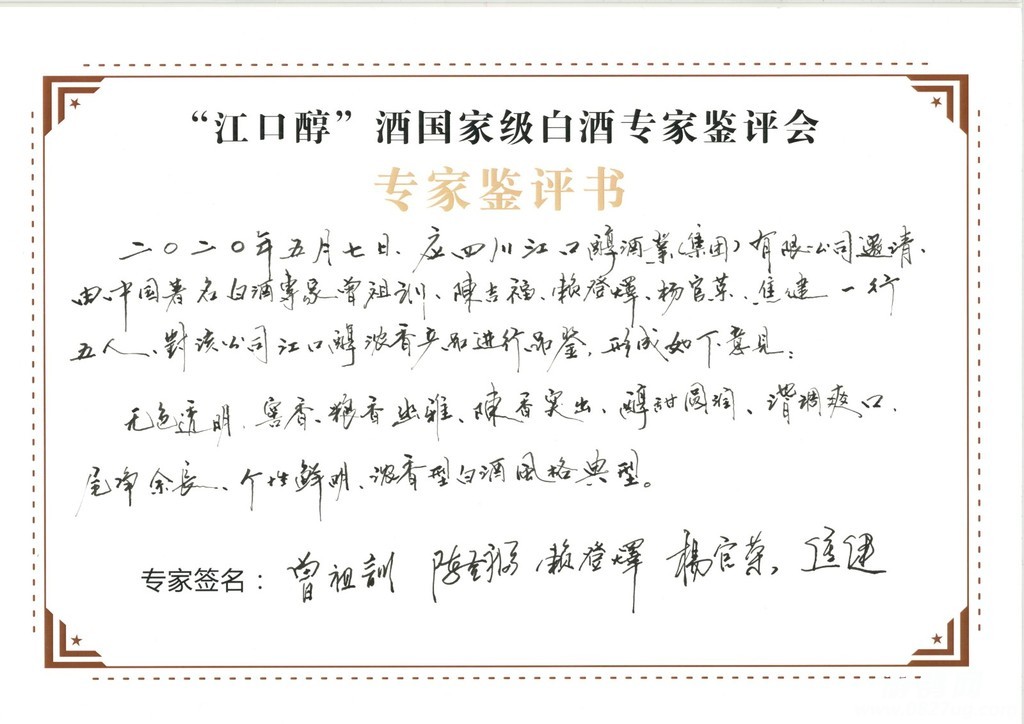 “江口醇”酒国家级白酒专家鉴评会
专家鉴评书
二〇二〇年五月七日、应四川江口醇酒業(集团)有限公司邀请、
由中国著名白酒專家曾祖训、陳吉福、赖登燡、杨官荣、焦健一行
五人、對该公司江口醇浓香产品进行品鉴，形成如下意见：
无色透明、窖香、粮香幽雅、陳香突出、醇甜圆润、谐调爽口、
尾净余長、个性鲜明、浓香型白酒風格典型。
专家签名： 曾祖訓 陈吉福 赖登燡 楊官荣 焦健